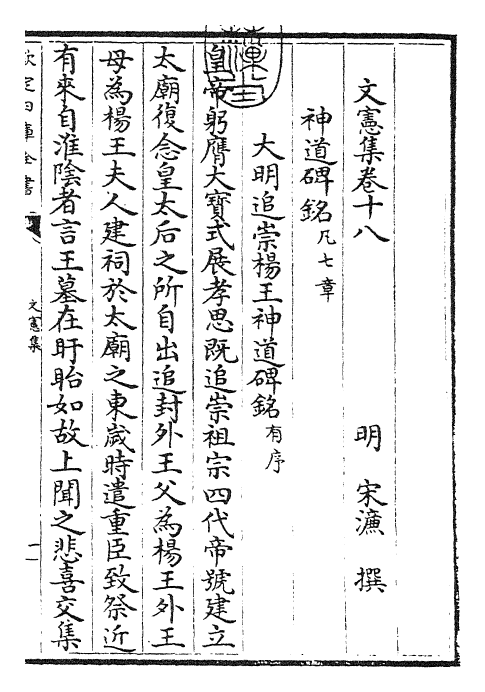 文憲集卷十八
明 宋濂 撰
神道碑銘凡七章
大明追崇楊王神道碑銘有序
皇帝躬膺大寶式展孝思既追崇祖宗四代帝號建立
太廟復念皇太后之所自出追封外王父為楊王外王
母為楊王夫人建祠於太廟之東歲時遣重臣致祭近
有來自淮陰者言王墓在盱眙如故上聞之悲喜交集
欽定四庫全書
文憲集
一